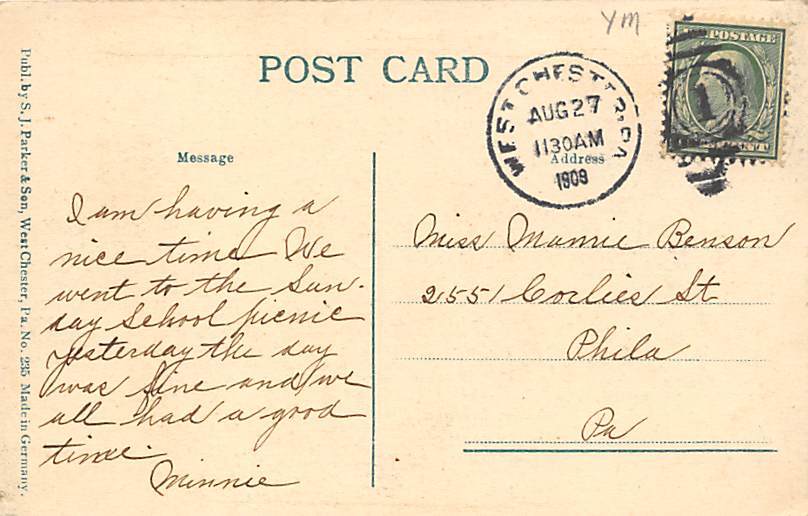 YM
POST CARD
POSTAGE
WEST CHESTER, PA.
AUG 27
1130AM
1909
1
Message
Address
I am having a
nice time We
went to the Sun-
day School picnic
yesterday the day
was fine and we
all had a good
time.
Minnie
Miss Mamie Benson
2551 Corlies St
Phila
Pa
Publ. by S. J. Parker & Son, West Chester, Pa. No. 235 Made in Germany.